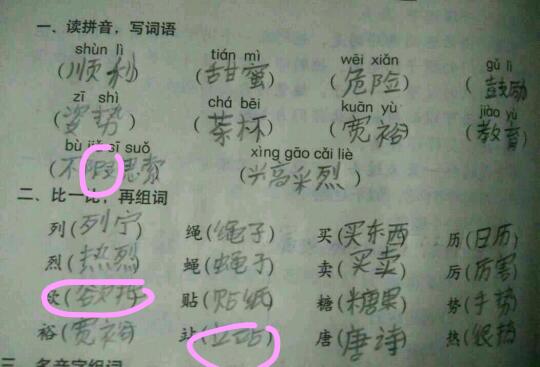 一、读拼音，写词语
shùn lì tián mì wēi xiǎn gǔ lì
(顺利) (甜蜜) (危险) (鼓励
zī shì chá bēi kuān yù jiào yù
(姿势) (茶杯) (宽裕) (教育
bù jiǎ sī suǒ xìng gāo cǎi liè
(不思索 (兴高采烈)
二、比一比，再组词
列(列宁) 绳(绳子) 买(买东西 历(日历)
烈(热烈) 蝇(蝇子) 卖(买卖) 厉(厉害)
贴(贴纸) 糖(糖果) 势(手势)
裕(宽裕) 站( 唐(唐诗) 热(很热
三、多音字组词